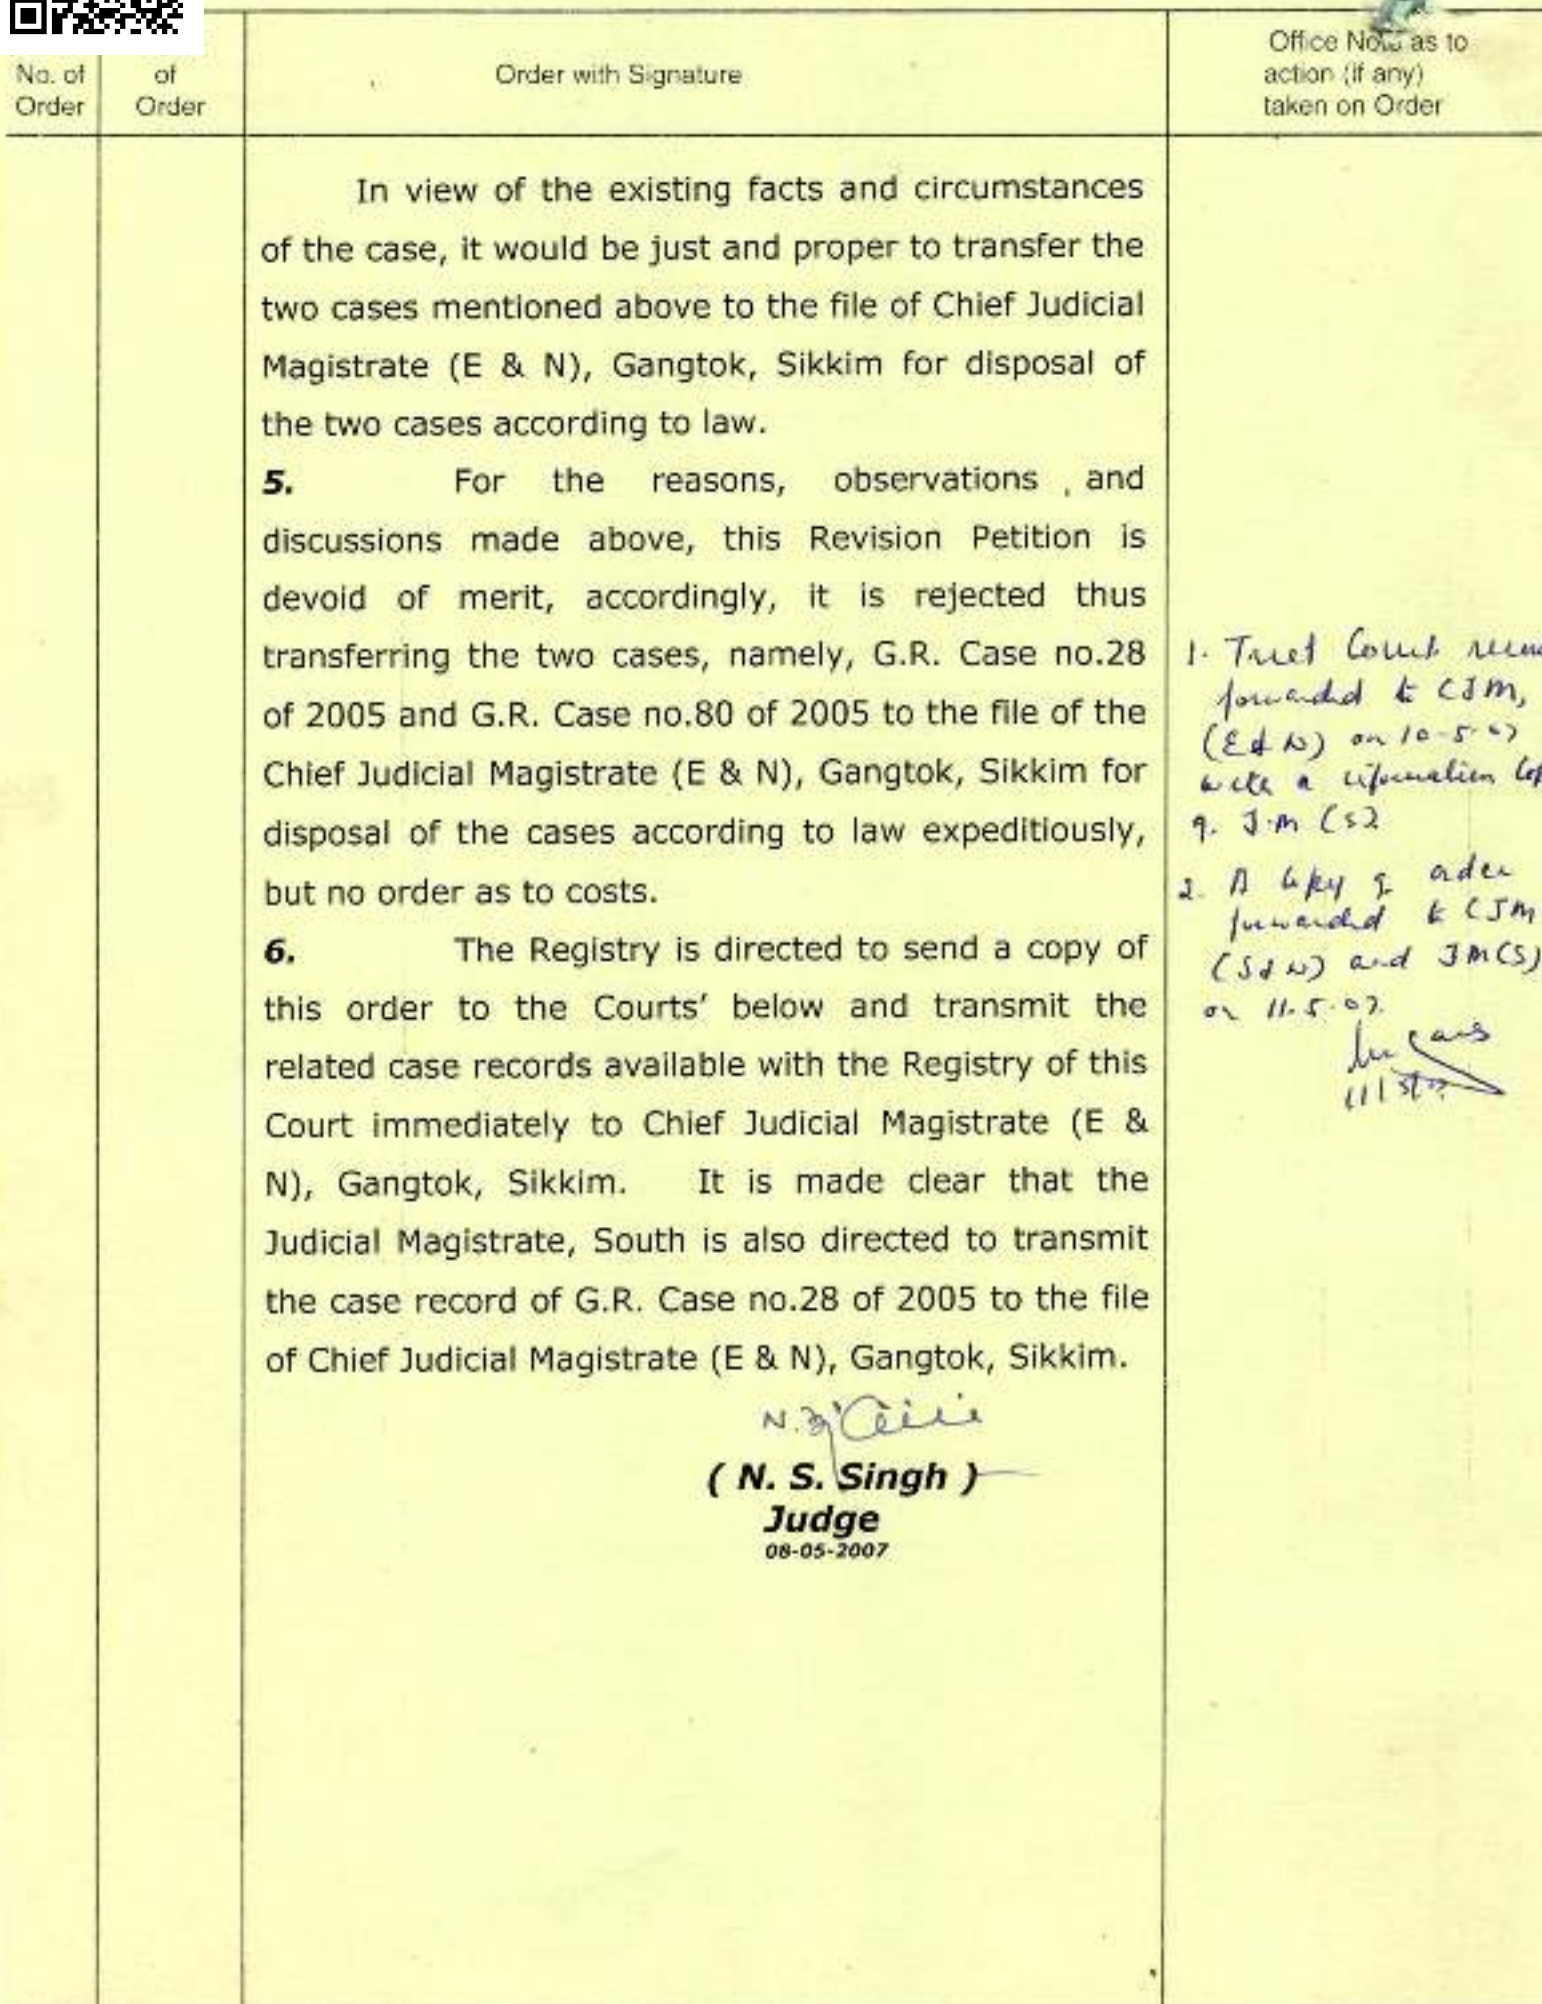 No. of
Order
of
Order
Order with Signature
Office Note as to
action (if any)
taken on Order
In view of the existing facts and circumstances
of the case, it would be just and proper to transfer the
two cases mentioned above to the file of Chief Judicial
Magistrate (E & N), Gangtok, Sikkim for disposal of
the two cases according to law.
5. For the reasons, observations , and
discussions made above, this Revision Petition is
devoid of merit, accordingly, it is rejected thus
transferring the two cases, namely, G.R. Case no.28
of 2005 and G.R. Case no.80 of 2005 to the file of the
Chief Judicial Magistrate (E & N), Gangtok, Sikkim for
disposal of the cases according to law expeditiously,
but no order as to costs.
6. The Registry is directed to send a copy of
this order to the Courts' below and transmit the
related case records available with the Registry of this
Court immediately to Chief Judicial Magistrate (E &
N), Gangtok, Sikkim. It is made clear that the
Judicial Magistrate, South is also directed to transmit
the case record of G.R. Case no.28 of 2005 to the file
of Chief Judicial Magistrate (E & N), Gangtok, Sikkim.
( N. S. Singh )
Judge
08-05-2007
1. Court
forwarded to CJM,
(E & N) on 10-5-07
with a information
J.M (S)
2. A copy of order
forwarded to CJM
(S & N) and JM(S)
on 11-5-07.